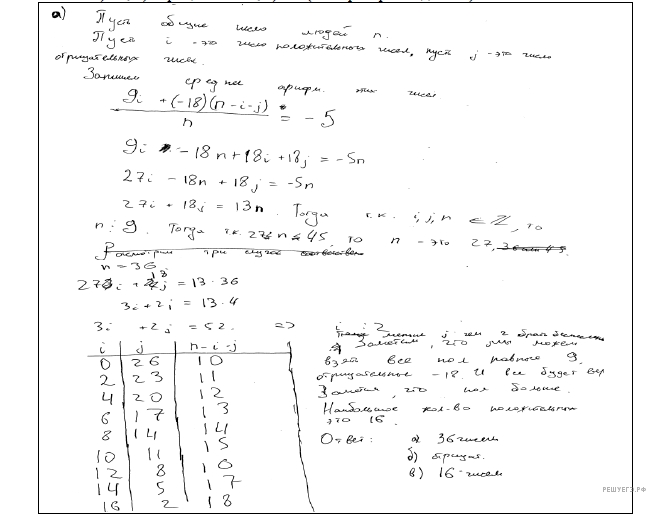 а) Пусть общие число людей n.
Пусть i - это число положительных чисел, пусть j - это число
отрицательных чисел.
Запишем среднее арифм. этих чисел
9i + (-18)(n-i-j) / n = -5
9i - 18n + 18i + 18j = -5n
27i - 18n + 18j = -5n
27i + 18j = 13n. Тогда т.к. i, j, n ∈ Z, то
n ⋮ 9. Тогда т.к. n ≤ 45, то n - это 27,
n = 36
i + j = 13·36
3i + 2j = 13·4
3i + 2j = 52. =>
i j n-i-j
0 26 10
2 23 11
4 20 12
6 17 13
8 14 14
10 11 15
12 8 16
14 5 17
16 2 18
i ⋮ 2
Заметим, что мы можем
взять все пол равные 9,
отрицательные -18. И все будет вер
Заметим, что пол больше.
Наибольшее кол-во положительных
это 16.
Ответ: а) 36 чисел
б) отрицат.
в) 16 чисел
РЕШУЕГЭ.РФ